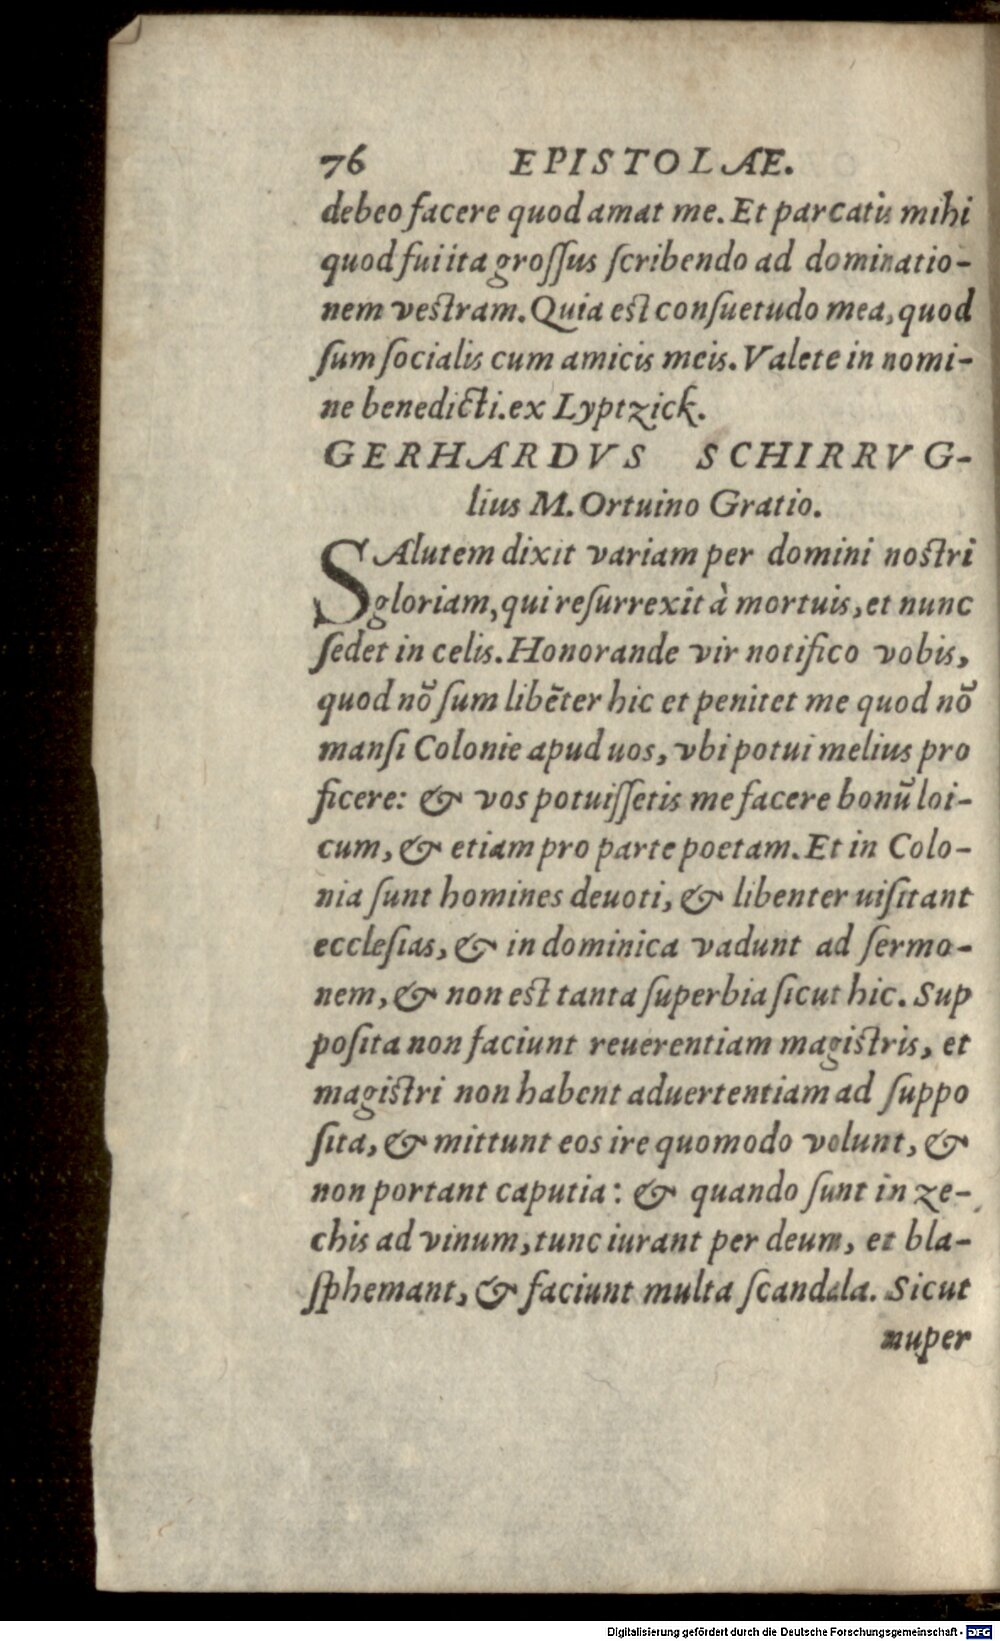 76 EPISTOLÆ.
debeo facere quod amat me. Et parcatis mihi
quod fui ita groſſus ſcribendo ad dominatio-
nem veſtram. Quia eſt conſuetudo mea, quod
ſum ſocialis cum amicis meis. Valete in nomi-
ne benedicti. ex Lyptzick.
GERHARDVS SCHIRRVG-
lius M. Ortuino Gratio.
SAlutem dixit variam per domini noſtri
gloriam, qui reſurrexit à mortuis, et nunc
ſedet in celis. Honorande vir notifico vobis,
quod nō ſum libēter hic et penitet me quod nō
manſi Colonie apud uos, vbi potui melius pro
ficere: & vos potuiſſetis me facere bonū loi-
cum, & etiam pro parte poetam. Et in Colo-
nia ſunt homines deuoti, & libenter uiſitant
eccleſias, & in dominica vadunt ad ſermo-
nem, & non eſt tanta ſuperbia ſicut hic. Sup
poſita non faciunt reuerentiam magiſtris, et
magiſtri non habent aduertentiam ad ſuppo
ſita, & mittunt eos ire quomodo volunt, &
non portant caputia: & quando ſunt in ze-
chis ad vinum, tunc iurant per deum, et bla-
ſphemant, & faciunt multa ſcandala. Sicut
nuper
Digitalisierung gefördert durch die Deutsche Forschungsgemeinschaft - DFG